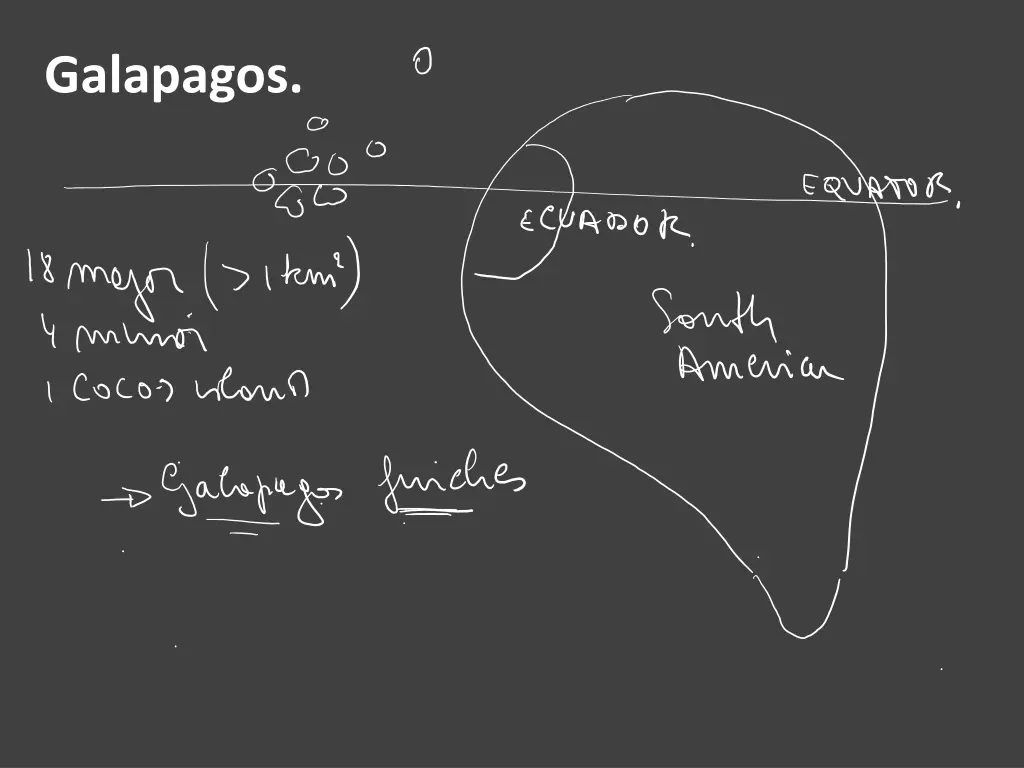 Galapagos.
EQUATOR.
ECUADOR.
18 major (>1 km²)
4 minor
1 COCOS island
South
American
→ Galapagos finches